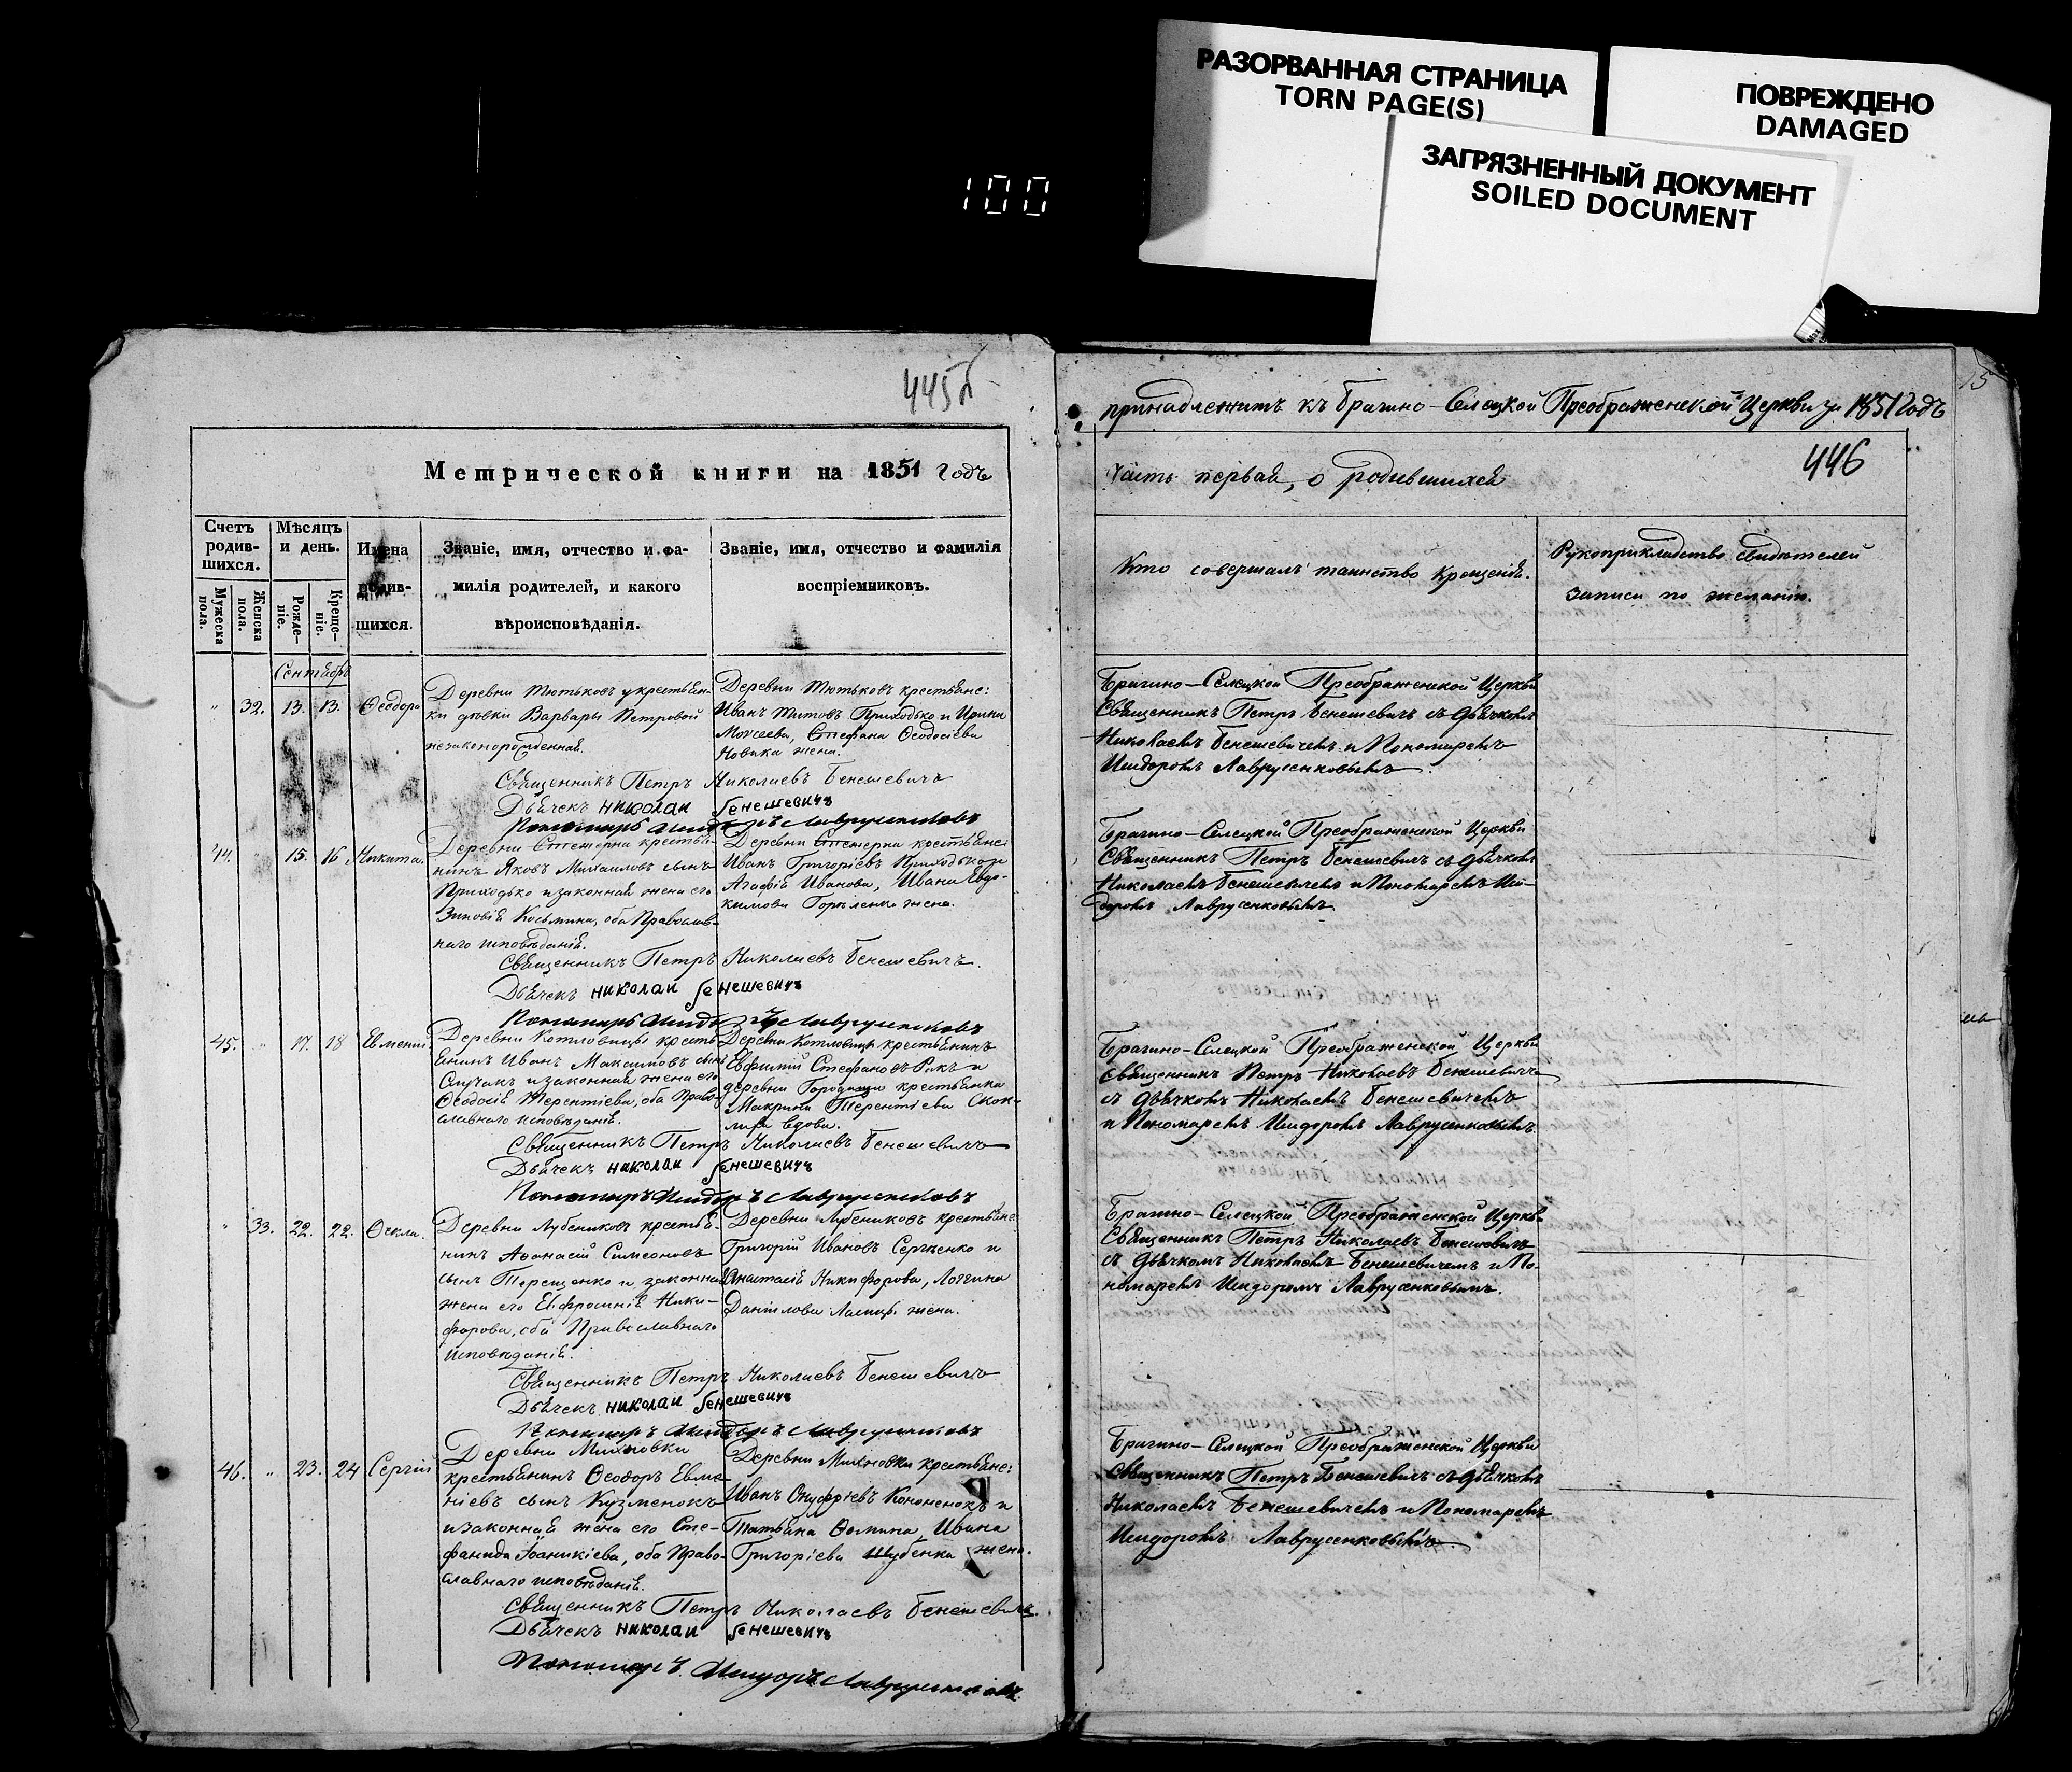 РАЗОРВАННАЯ СТРАНИЦА
TORN PAGE(S)
ПОВРЕЖДЕНО
DAMAGED
ЗАГРЯЗНЕННЫЙ ДОКУМЕНТ
SOILED DOCUMENT
100
445б
Метрической книги на 1851 годъ
Счетъ родив-
шихся.
Мѣсяцъ
и день.
Имена
родив-
шихся.
Званіе, имя, отчество и фа-
милія родителей, и какого
вѣроисповѣданія.
Званіе, имя, отчество и фамилія
воспріемниковъ.
Мужеска
пола.
Женска
пола.
Рожде-
ніе.
Креще-
ніе.
Сентябрь
" 32. 13. 13. Ѳеодора
Деревни Тютьковъ у крестьян-
ки дѣвки Варвары Петровой
незаконорожденная.
Деревни Тютьковъ крестьяне:
Иванъ Титовъ Приходько и Ирина
Моисеева, Стефана Ѳеодосіева
Новика жена.
Священникъ Петръ Николаевъ Бенешевичъ
Дьячекъ николаи бенешевичъ
Пономарь Исидоръ Лаврусенковъ
44. 15. 16 Никита.
Деревни крестья-
нинъ Яковъ Михаиловъ сынъ
Приходько и законная жена его
Зиновія Косьмина, оба Православ-
наго исповѣданія.
Деревни крестьяне:
Иванъ Григоріевъ Приходько и
Агафія Иванова, Ивана Евдо-
кимова Горѣленка жена.
Священникъ Петръ Николаевъ Бенешевичъ.
Дьячекъ николаи бенешевичъ
Пономарь Исидоръ Лаврусенковъ
45. " 17. 18 Евменій.
Деревни Котловицы кресть-
янинъ Иванъ Максимовъ сынъ
и законная жена его
Ѳеодосія Терентіева, оба Право-
славнаго исповѣданія.
Деревни Котловицы крестьянинъ
Евфимій Стефановъ и
деревни крестьянка
Макрина Терентіева
вдова.
Священникъ Петръ Николаевъ Бенешевичъ
Дьячекъ николаи бенешевичъ
Пономарь Исидоръ Лаврусенковъ
" 33. 22. 22. Ѳекла.
Деревни Лубениковъ крестья-
нинъ Аѳанасій Симеоновъ
сынъ Терещенко и законная
жена его Евфросинія Ники-
форова, оба Православнаго
исповѣданія.
Деревни Лубениковъ крестьяне:
Григорій Ивановъ Сергѣенко и
Анастасія Никифорова, Логгина
Даніилова жена.
Священникъ Петръ Николаевъ Бенешевичъ
Дьячекъ николаи бенешевичъ
Пономарь Исидоръ Лаврусенковъ
46. " 23. 24 Сергій
Деревни Михновки
крестьянинъ Ѳеодоръ Евме-
ніевъ сынъ Кузменокъ
и законная жена его Сте-
фанида Іоаникіева, оба Право-
славнаго исповѣданія.
Деревни Михновки крестьяне:
Иванъ Онуфріевъ Кононенокъ и
Татьяна Ѳомина, Ивана
Григоріева Шубенка жена.
Священникъ Петръ Николаевъ Бенешевичъ.
Дьячекъ николаи бенешевичъ
Пономарь Исидоръ Лаврусенковъ
15
принадлежитъ къ Брагино-Селецкой Преображенской Церкви за 1851 годъ
446
Часть первая, о родившихся
Кто совершалъ таинство Крещенія.
Рукоприкладство свидѣтелей
записи по желанію.
Брагино-Селецкой Преображенской Церкви
Священникъ Петръ Бенешевичъ съ дьячкомъ
Николаемъ Бенешевичемъ и Пономаремъ
Исидоромъ Лаврусенковымъ.
Брагино-Селецкой Преображенской Церкви
Священникъ Петръ Бенешевичъ съ дьячкомъ
Николаемъ Бенешевичемъ и Пономаремъ Иси-
доромъ Лаврусенковымъ.
Брагино-Селецкой Преображенской Церкви
Священникъ Петръ Николаевъ Бенешевичъ
съ дьячкомъ Николаемъ Бенешевичемъ
и Пономаремъ Исидоромъ Лаврусенковымъ
Брагино-Селецкой Преображенской Церкви
Священникъ Петръ Николаевъ Бенешевичъ
съ дьячкомъ Николаемъ Бенешевичемъ и По-
номаремъ Исидоромъ Лаврусенковымъ.
Брагино-Селецкой Преображенской Церкви
Священникъ Петръ Бенешевичъ съ дьячкомъ
Николаемъ Бенешевичемъ и Пономаремъ
Исидоромъ Лаврусенковымъ.